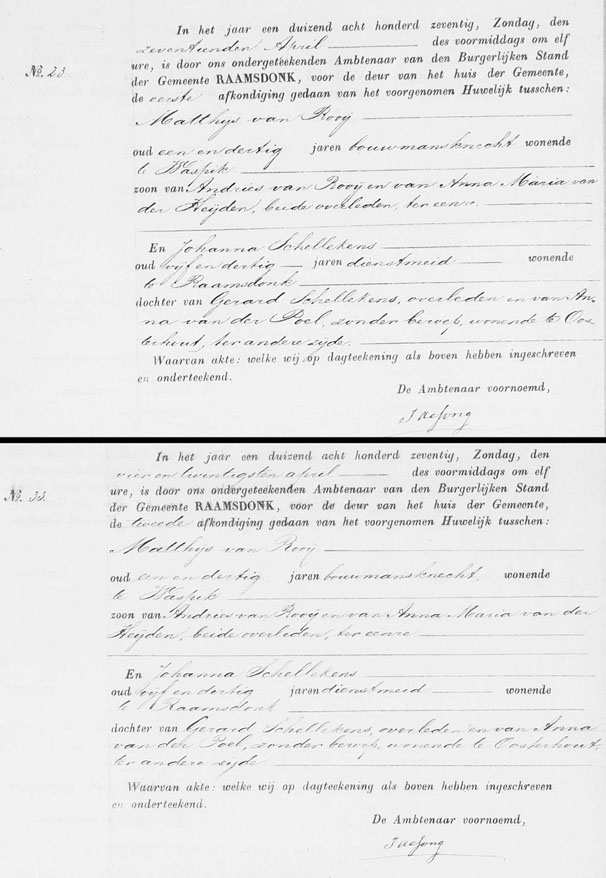 In het jaar een duizend acht honderd zeventig, Zondag, den
zeventienden April des voormiddags om elf
ure, is door ons ondergeteekenden Ambtenaar van den Burgerlijken Stand
No. 23
der Gemeente RAAMSDONK, voor de deur van het huis der Gemeente,
de eerste afkondiging gedaan van het voorgenomen Huwelijk tusschen:
Matthijs van Rooij
oud een en dertig jaren bouwmansknecht wonende
te Waspik
zoon van Andries van Rooij en van Anna Maria van
der Heijden, beide overleden, ter eenre
En Johanna Schellekens
oud vijf en dertig jaren dienstmeid wonende
te Raamsdonk
dochter van Gerard Schellekens, overleden en van An-
na van der Poel, zonder beroep, wonende te Oos-
terhout, ter andere zijde.
Waarvan akte: welke wij op dagteekening als boven hebben ingeschreven
en onderteekend.
De Ambtenaar voornoemd,
J de Jong
In het jaar een duizend acht honderd zeventig, Zondag, den
vier en twintigsten april des voormiddags om elf
ure, is door ons ondergeteekenden Ambtenaar van den Burgerlijken Stand
No. 33.
der Gemeente RAAMSDONK, voor de deur van het huis der Gemeente,
de tweede afkondiging gedaan van het voorgenomen Huwelijk tusschen:
Matthijs van Rooij
oud een en dertig jaren bouwmansknecht, wonende
te Waspik
zoon van Andries van Rooij en van Anna Maria van der
Heijden, beide overleden, ter eenre
En Johanna Schellekens
oud vijf en dertig jaren dienstmeid wonende
te Raamsdonk
dochter van Gerard Schellekens, overleden en van Anna
van der Poel, zonder beroep, wonende te Oosterhout,
ter andere zijde
Waarvan akte: welke wij op dagteekening als boven hebben ingeschreven
en onderteekend.
De Ambtenaar voornoemd,
J de Jong